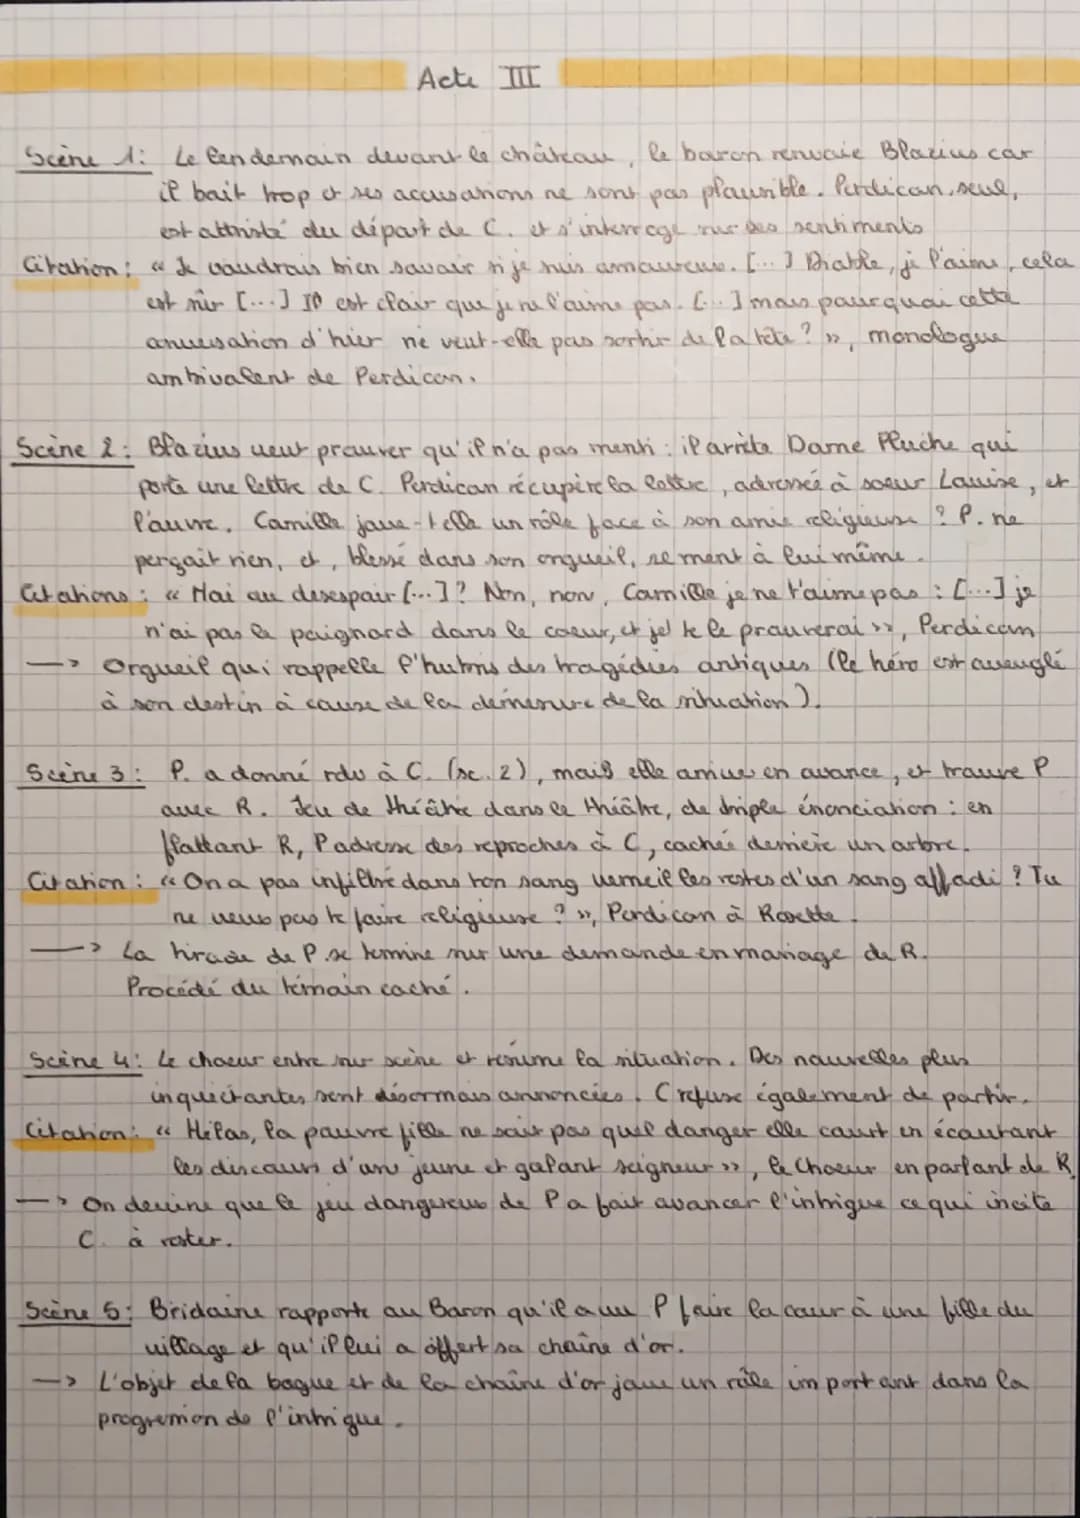 Acte III
Scène 1: Le lendemain devant le château, le baron renvoie Blazius car
il boit trop et ses accusations ne sont pas plausible. Perdican, seul,
est attristé du départ de C. et s'interroge sur ses sentiments
Citation: « Je voudrais bien savoir si je suis amoureux. [...] Diable, je l'aime, cela
est sûr [...] Il est clair que je ne l'aime pas. [...] mais pourquoi cette
conversation d'hier ne veut-elle pas sortir de la tête ? », monologue
ambivalent de Perdican.
Scène 2: Blazius veut prouver qu'il n'a pas menti : il arrête Dame Pluche qui
porte une lettre de C. Perdican récupère la lettre, adressée à soeur Louise, et
l'ouvre. Camille joue-t-elle un rôle face à son amie religieuse ? P. ne
perçoit rien, et, blessé dans son orgueil, se ment à lui même.
Citations : « Moi au desespoir [...] ? Non, non, Camille je ne t'aime pas : [...] je
n'ai pas le poignard dans le coeur, et je te le prouverai », Perdican
—> Orgueil qui rappelle l'hubris des tragédies antiques (le héro est aveuglé
à son destin à cause de la démesure de la situation).
Scène 3: P. a donné rdv à C. (sc. 2), mais elle arrive en avance, et trouve P
avec R. Jeu de théâtre dans le théâtre, de triple énonciation : en
flattant R, P adresse des reproches à C, cachée derrière un arbre.
Citation : « On a pas infiltré dans ton sang vermeil les restes d'un sang affadi ? Tu
ne veux pas te faire religieuse ? », Perdican à Rosette.
—> La tirade de P. se termine sur une demande en mariage de R.
Procédé du témoin caché.
Scène 4: Le choeur entre sur scène et résume la situation. Des nouvelles plus
inquiétantes sont désormais annoncées. C refuse également de partir.
Citation: « Hélas, la pauvre fille ne sait pas quel danger elle court en écoutant
les discours d'un jeune et galant seigneur », le Choeur en parlant de R.
—> On devine que le jeu dangereux de P a fait avancer l'intrigue ce qui incite
C. à rester.
Scène 5: Bridaine rapporte au Baron qu'il a vu P faire la cour à une fille du
village et qu'il lui a offert sa chaîne d'or.
—> L'objet de la bague et de la chaîne d'or joue un rôle important dans la
progression de l'intrigue.